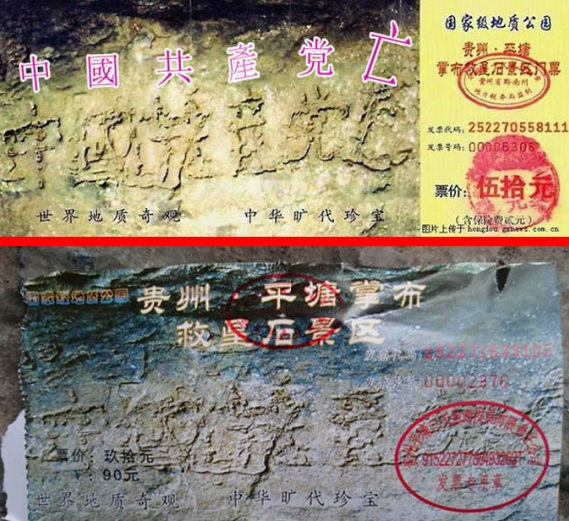 中國共產党亡
中國共産党亡
世界地质奇观 中华旷代珍宝
国家级地质公园
贵州·平塘
掌布救星石景区门票
贵州省黔南州
地方税务局监制
发票代码：252270558111
发票号码：00006306
票价：伍拾元
（含保险费贰元）
图片上传于 honglou.gxnews.com.cn
国家级地质公园
贵州·平塘掌布
救星石景区
发票号码 00002376
中國共産党
票价：玖拾元
90元
发票专用章
世界地质奇观 中华旷代珍宝